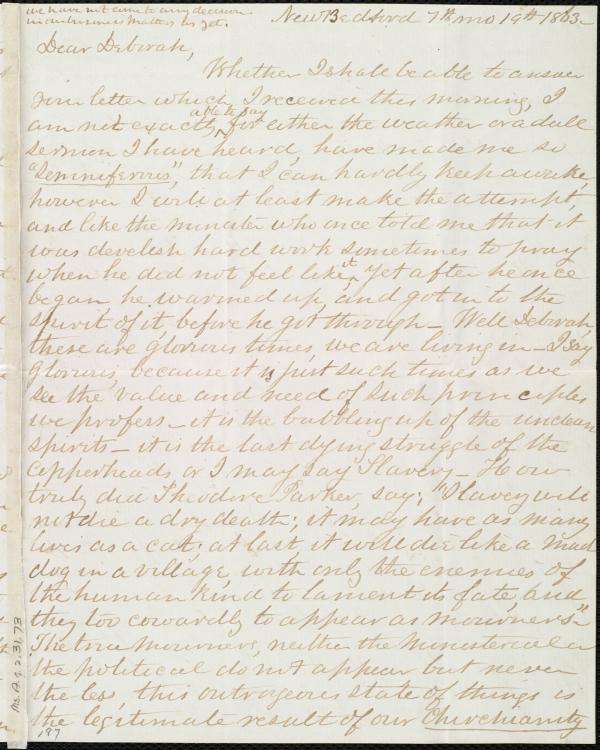 we have not come to any decision
in our business matters as yet.
New Bedford 7th mo 19th 1863
Dear Deborah,
Whether I shall be able to answer
your letter which I received this morning, I
am not exactly able to say
for either the weather or a dull
sermon I have heard, have made me so
"Somniferous", that I can hardly keep awake,
however I will at least make the attempt,
and like the minister who once told me that it
was develish hard work sometimes to pray
when he did not feel like it, yet after he once
began he warmed up, and got in to the
spirit of it, before he got through — Well Deborah,
these are glorious times we are living in — I say
glorious, because it is just such times as we
see the value and need of such principles
we profess — it is the bubbling up of the unclean
spirits — it is the last dying struggle of the
copperheads or I may say Slavery — How
truly did Theodore Parker, say; "Slavery will
not die a dry death; it may have as many
lives as a cat; at last, it will die like a mad
dog in a village, with only the enemies of
the human kind to lament its fate, and
they too cowardly to appear as mourners"
The true mourners, neither the Ministerial or
the political do not appear but never
the less, this outrageous state of things is
the legitimate result of our Churchianity
Ms. A. 9. 2. 31, 73
197